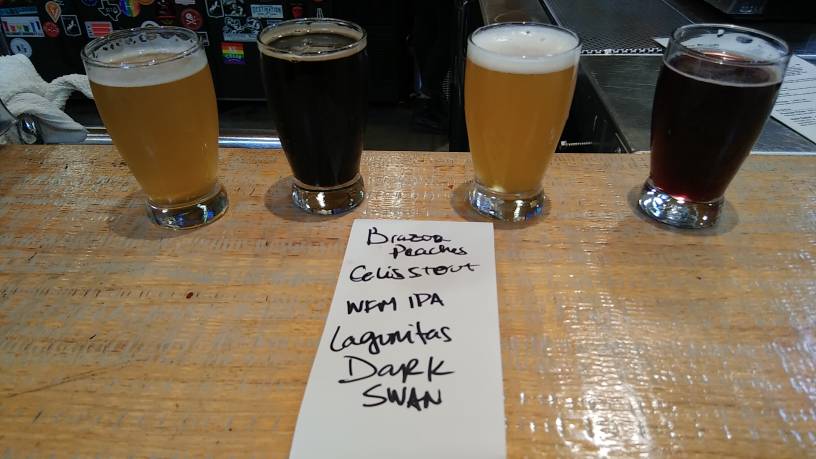 Brazos
Peaches
Celis Stout
WFM IPA
Lagunitas
Dark
SWAN